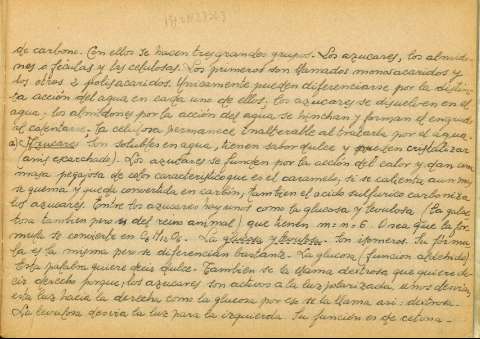 de carbono. Con ellos se hacen tres grandes grupos. Los azucares, los almido-
nes o féculas y las celulosas. Los primeros son llamados monosacaridos y
los otros 2 polisacaridos. Unicamente pueden diferenciarse por la distin-
ta acción del agua en cada uno de ellos, los azucares se disuelven en el
agua, los almidones por la acción del agua se hinchan y forman el engrudo
al calentarse. La celulosa permanece inalterable al tratarla por el agua.
a) Azucares son solubles en agua, tienen sabor dulce y pueden cristalizar
(anis escarchado). Los azucares se funden por la acción del calor y dan una
masa pegajosa de color caracteristico que es el caramelo, si se calienta aun mas,
se quema y queda convertida en carbón, tambien el acido sulfurico carboniza
los azucares. Entre los azucares hay unos como la glucosa y levulosa (la galac-
tosa tambien pero es del reino animal) que tienen m=n=6. O sea que la fór-
mula se convierte en C6 H12 O6. La glucosa y levulosa. Son isomeros. Su fórmu-
la es la misma pero se diferencian bastante. La glucosa (funcion aldehido)
Esta palabra quiere decir dulce. Tambien se la llama dextrosa que quiere de-
cir derecho porque, los azucares son activos a la luz polarizada, unos desvian
esta luz hacia la derecha como la glucosa por eso se la llama asi: dextrosa.
La levulosa desvia la luz para la izquierda. Su función es de cetona.